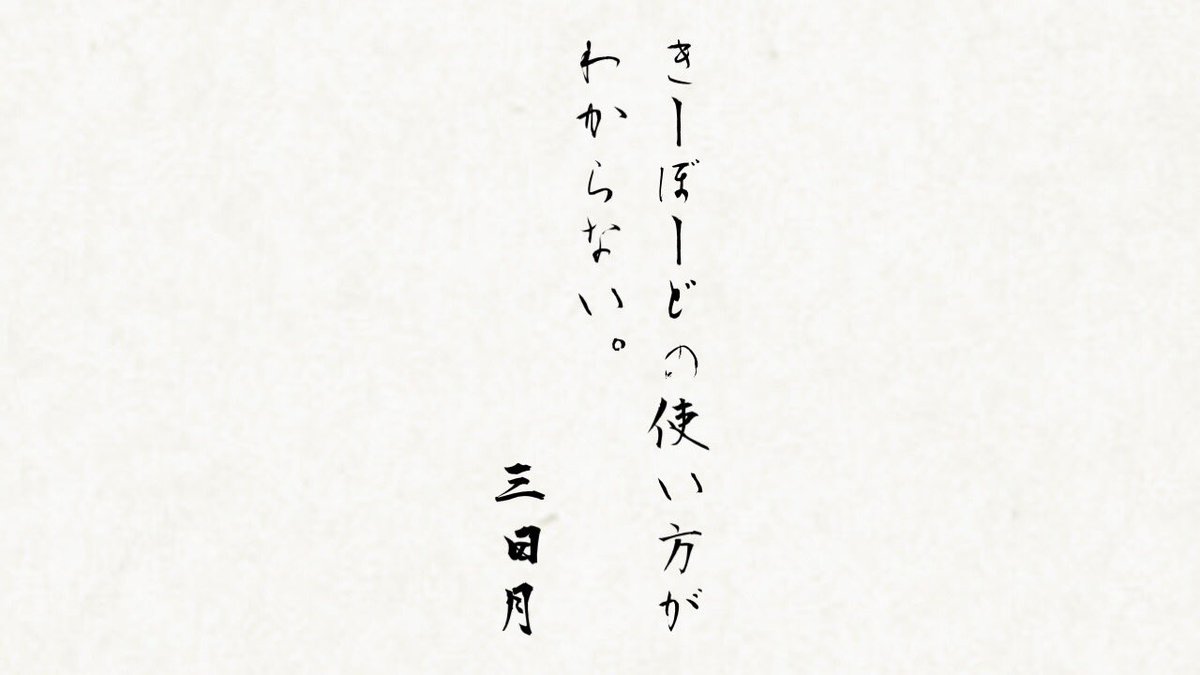 きーぼーどの使い方が
わからない。
三日月